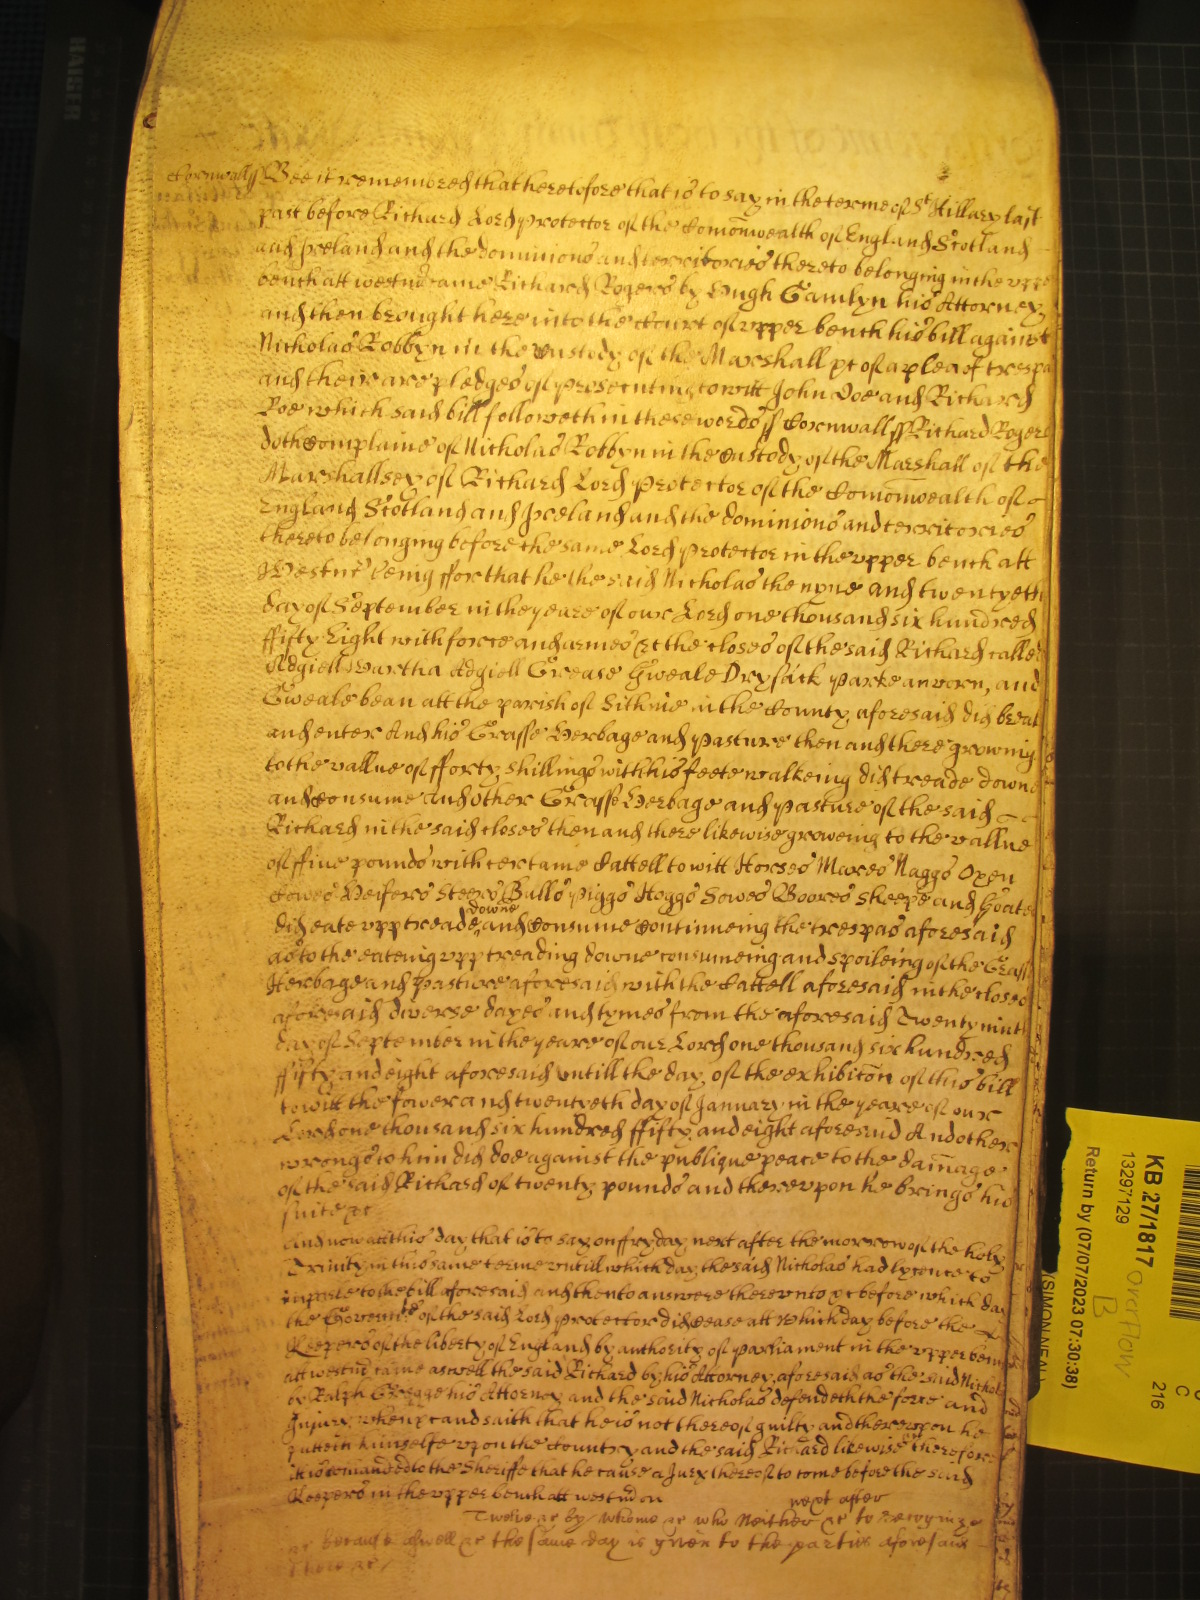 Cornwall ss Bee it remembred that heretofore that is to say in the terme of St Hillary last
past before Richard Lord Protector of the Comonwealth of England Scotland
and Ireland and the dominions and territories thereto belonging in the upper
bench att westmr came Richard Rogers by Hugh Gamlyn his Attorney
and then brought here into the Court of upper bench his bill against
Nicholas Robbyn in the Custody of the Marshall &c of a plea of trespas
and their are pledges of prosecuting to witt John Doe and Richard
Roe which said bill followeth in these words ss Cornwall ss Richard Rogers
doth Complaine of Nicholas Robbyn in the Custody of the Marshall of the
Marshallsey of Richard Lord Protector of the Comonwealth of
England Scotland and Ireland and the dominions and territories
thereto belonging before the same Lord Protector in the upper bench att
Westmr being ffor that he the said Nicholas the nyne and twentyeth
day of September in the yeare of our Lord one thousand six hundred
ffifty Eight with force and armes &c the closes of the said Richard called
Adgiell Wartha Adgiell Crease Gweale Drysack Parke an vorn, and
Gweale bean att the parish of Sithnie in the County aforesaid did break
and enter And his Grasse Herbage and Pasture then and there growing
to the vallue of fforty shillings with his feete walkeing did treade downe
and Consume and other Grasse Herbage and Pasture of the said
Richard in the said closes then and there likewise groweing to the vallue
of ffive pounds with certaine Cattell to witt Horses Mares Naggs Oxen
Cowes Heifers Steers Bulls Piggs Hoggs Sowes Boores sheepe and Goates
did eate upp treade downe and Consume Continueing the trespas aforesaid
as to the eateing upp treading downe consumeing and spoileing of the Grasse
Herbage and Pasture aforesaid with the Cattell aforesaid in the closes
aforesaid diverse dayes and tymes from the aforesaid Twenty ninth
day of September in the yeare of our Lord one thousand six hundred
ffifty and eight aforesaid untill the day of the exhibicon of this bill
to witt the fower and twentyeth day of January in the yeare of our
Lord one thousand six hundred ffifty and eight aforesaid And other
wrongs to him did doe against the publique peace to the damage
of the said Richard of twenty pounds and thereupon he brings his
suite &c
And now att this day that is to say on ffryday next after the morrow of the holy
Trinity in this same terme untill which day the said Nicholas had lycence to
imparle to the bill aforesaid and then to answere thereunto &c before which day
the Governmt of the said Lord Protector did cease att which day before the
Keepers of the liberty of England by authority of parliament in the upper bench
att westmr came aswell the said Richard by his Attorney aforesaid as the said Nicholas
by Ralph Gregge his Attorney and the said Nicholas defendeth the force and
Injury when &c and saith that he is not thereof guilty and thereupon he
putteth himselfe upon the Country and the said Richard likewise &c therefore
it is comanded to the Sheriffe that he cause a Jury thereof to come before the said
Keepers in the upper bench att westmr on next after
Twelve &c by whome &c who Neither &c to recognize
&c because aswell &c the same day is given to the parties aforesaid
there &c
KB 27/1817
13297129
Return by (07/07/2023 07:30:38)
overflow
B
216
C
(SIMON NEAL)
HAISER